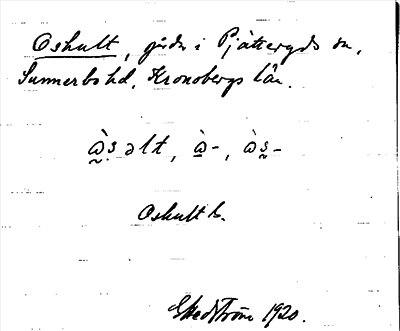 Oshult, gårdn i Pjätteryds sn,
Sunnerbo hd, Kronobergs län.
às̬ əlt, à̱-, às̬-
Oshult b.
Ekedström 1920.